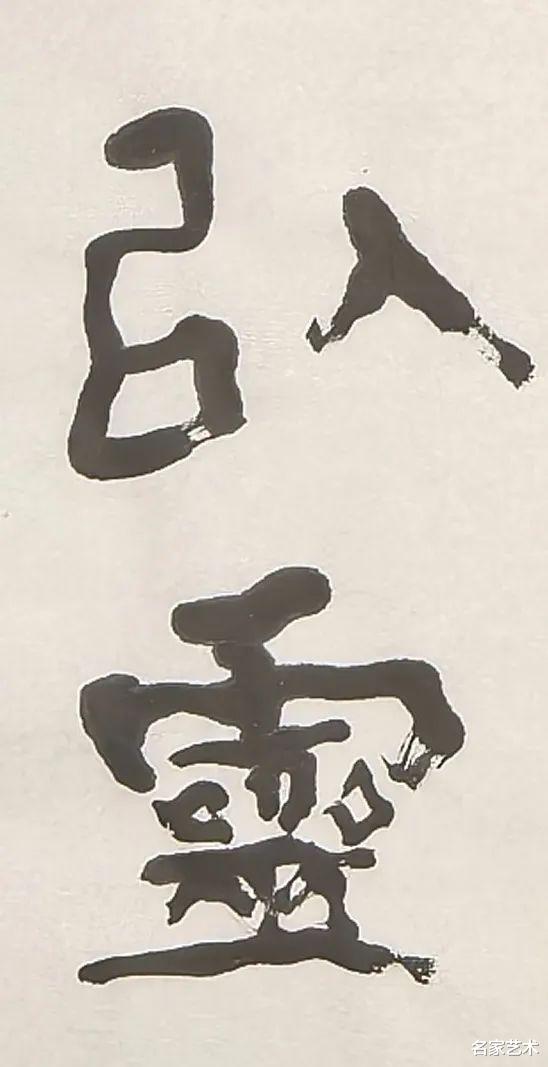 以
靈
名家艺术